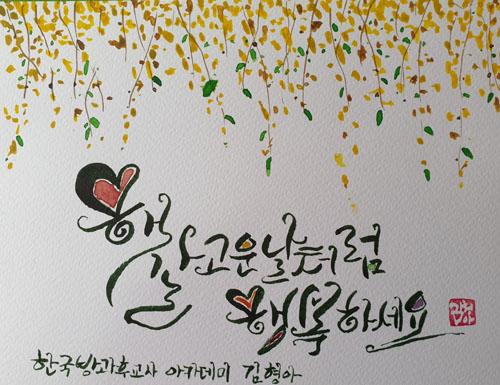 햇살 고운 날처럼
행복하세요
한국방과후교사 아카데미 김형아